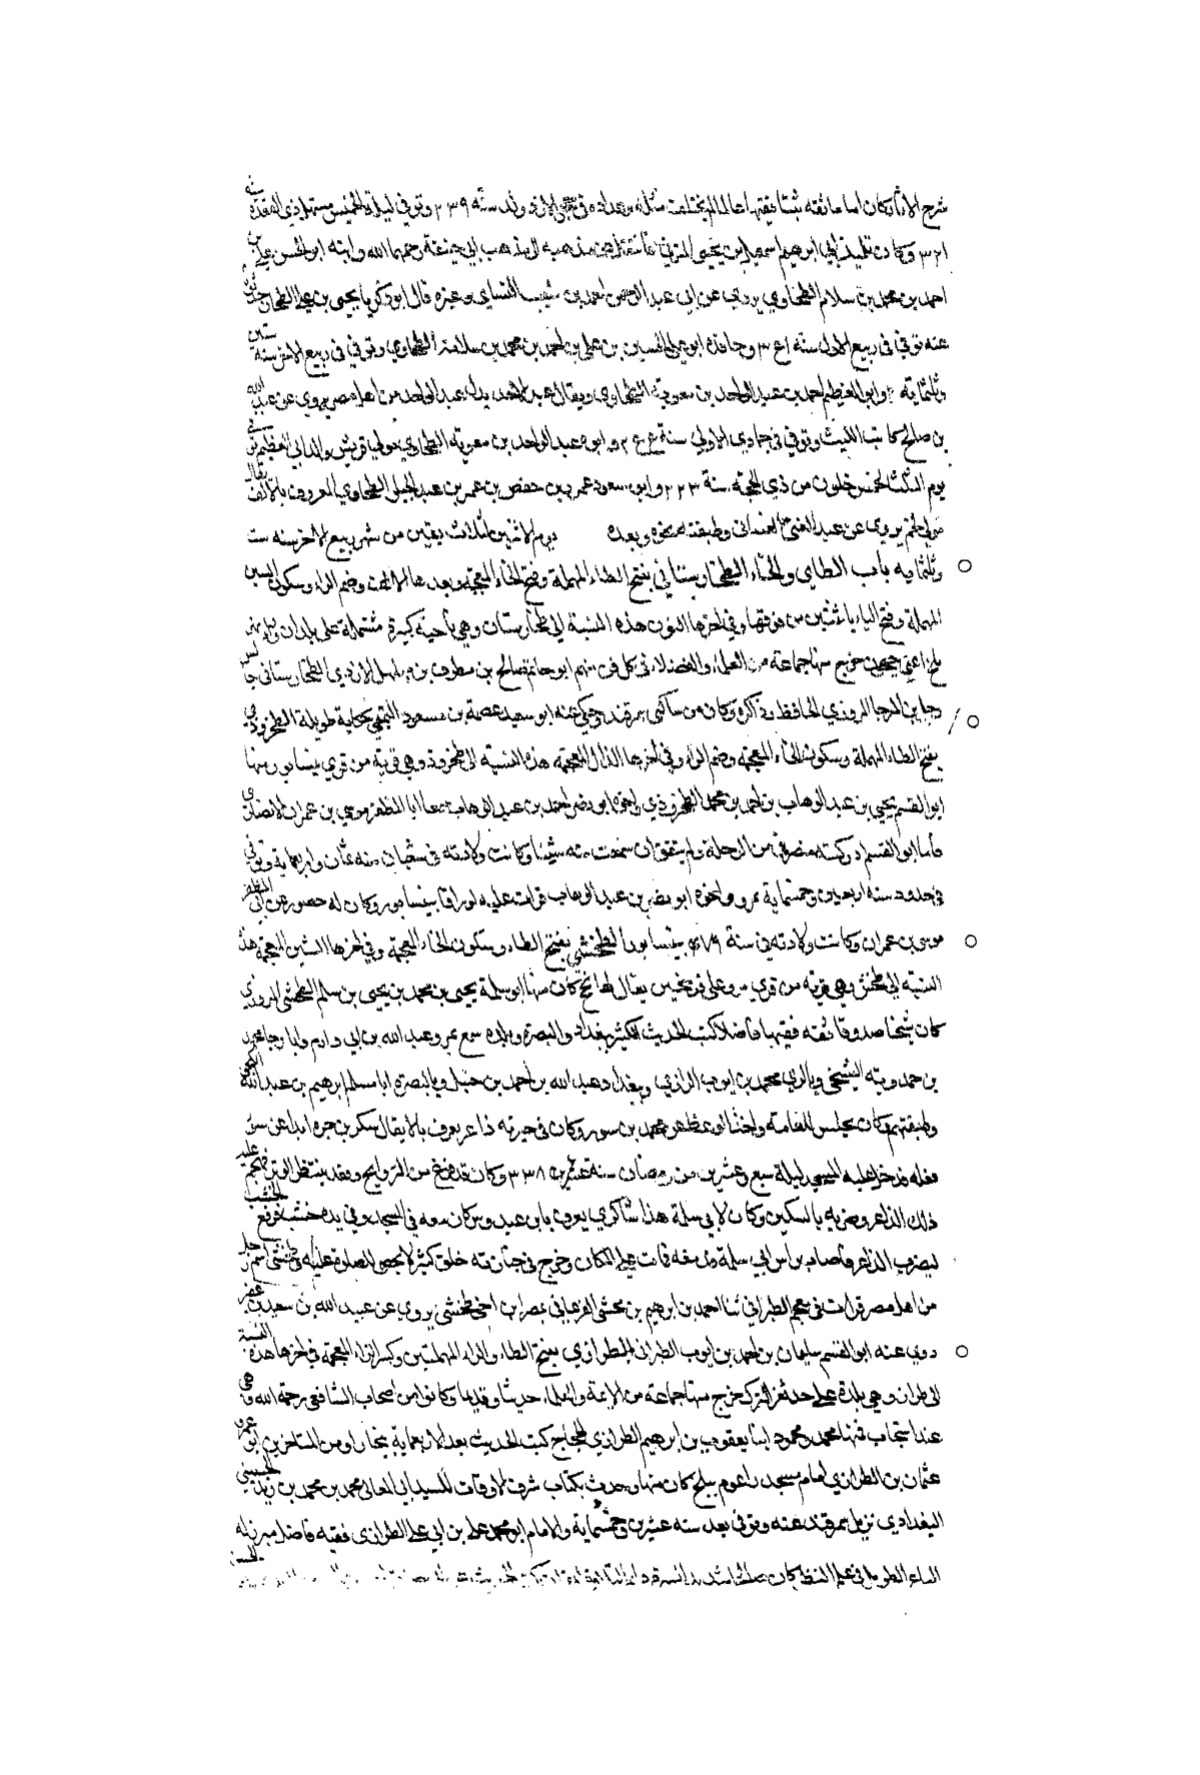 شرح الآثار وكان اماما ثقة ثبتا فقيها عالما لم يخلف مثله وعداده في حجر الازد ولد سنة ٢٣٩ وتوفي ليلة الخميس مستهل ذي القعدة سنة
٣٢١ وكان تلميذ ابي ابرهيم اسمعيل بن يحيى المزني فانتقل من مذهبه الى مذهب ابي حنيفة رحمهما الله وابنه ابو الحسن علي بن
احمد بن محمد بن سلامة الطحاوي يروي عن ابي عبد الرحمن احمد بن شعيب النسائي وغيره قال ابو زكريا يحيى بن علي الطحان حدثونا
عنه توفي في ربيع الاول سنة ٣٥١ وحافده ابو علي الحسين بن علي بن احمد بن محمد بن سلامة الطحاوي وتوفي في ربيع الاخر سنة ستين
وثلثماية وابو العظيم احمد بن عبد الواحد بن معوية الطحاوي ويقال عبد الاحد بدل عبد الواحد من اهل مصر يروي عن عبد الله
بن صالح كاتب الليث وتوفي في جمادي الاولي سنة وابوه عبد الواحد بن معوية الطحاوي مولى قريش والد ابي العظيم توفي
يوم الثلثا لخمس خلون من ذي الحجة سنة ٢٢٣ وابو سعود عمر بن حفص بن عمر بن عبد الجليل الطحاوي المعروف بالا يقال
مولى لخم يروي عن عبد الغني وطبقته نحوه وبعده يوم الاثنين لثلاث بقين من شهر ربيع الاخر سنة ست
وثلثماية باب الطاء والخاء الطخارستاني بفتح الطاء المهملة وفتح الخاء المعجمة وبعدها الالف وضم الراء وسكون السين
المهملة وفتح التاء باثنتين من فوقها وفي اخرها النون هذه النسبة الى طخارستان وهي ناحية كبيرة مشتملة على بلدان وراء نهر
بلخ اعني جيحون خرج منها جماعة من العلماء والفضلاء في كل فن منهم ابو حاتم صالح بن مطرف بن مهلهل الازدي الطخارستاني جالس
رجا بن المرجا المروزي الحافظ وذاكره وكان من ساكني سمرقند وحكي عنه ابو سعيد عصمة بن مسعود التميمي بحكاية طويلة الطخرودي
بفتح الطاء المهملة وسكون الخاء المعجمة وضم الراء وفي اخرها الذال المعجمة هذه النسبة الى طخروذ وهي قرية من قري نيسابور منها
ابو القسم يحيى بن عبد الوهاب بن احمد بن محمد الطخروذي واخوه ابو نصر احمد بن عبد الوهاب سمعا ابا المظفر موسي بن عمران الانصاري
فاما ابو القسم ادركته منصرفي من الرحلة ولم يتفق ان سمعت منه شيئا وكانت ولادته في شعبان سنة ثمان واربعماية وتوفي
في حدود سنة اربعين وخمسماية بمرو واخوه ابو نصر بن عبد الوهاب قرات عليه اوراقا بنيسابور وكان له حضور عن ابي المظفر
موسى بن عمران وكانت ولادته في سنة ٤٧٩ بنيسابور الطخشي بفتح الطاء وسكون الخاء المعجمة وفي اخرها الشين المعجمة هذه
النسبة الى طخش وهي قرية من قري مرو على فرسخين يقال لها كان منها ابو سلمة يحيى بن محمد بن يحيى بن سلم الطخشي المروزي
كان شيخا صدوقا ثقة فقيها فاضلا كتب الحديث الكثير ببغداد والبصرة وبلده سمع بمرو عبد الله بن ابي دارم وابا رجا محمد
بن حمدويه السنجي وبالري محمد بن ايوب الرازي وببغداد عبد الله بن احمد بن حنبل وبالبصرة ابا مسلم ابرهيم بن عبد الله الكجي
وطبقتهم وكان يجلس للعامة واخذ الوعظ عن محمد بن سورة وكان في جيرته ذاعر يعرف بالا يقال سكر بن جره ابدا عن سوء
فعله فدخل عليه المسجد ليلة سبع وعشرين من رمضان سنة ٣٣٨ وكان قد فرغ من التراويح وقعد ينتظر الوتر فهجم عليه
ذلك الذاعر وضربه بالسكين وكان لابي سلمة هذا شاكري يعرف بابن عبدوس كان معه في المسجد وفي يده خشبة فرفع الخشب
ليضرب الذاعر فاصاب راس ابي سلمة فدمغه فمات على المكان وخرج في جنازته خلق كثير لا يحصى للصلوة عليه وطخشي اسم رجل
من اهل مصر قرات في معجم الطبراني ثنا احمد بن ابرهيم بن مخشي الفرغاني بمصر ابن اخي طخشي يروي عن عبيد الله بن سعيد بن عفير
روي عنه ابو القسم سليمان بن احمد بن ايوب الطبراني الطرازي بفتح الطاء والراء المهملتين وكسر الزاء المعجمة في اخرها هذه النسبة
الى طراز وهي بلدة على حد ثغر الترك خرج منها جماعة من الائمة والعلماء حديثا وقديما وكانوا من اصحاب الشافعي رحمة الله وهي
عند اسبيجاب فمنها محمد ومحمود ابنا يعقوب بن ابرهيم الطرازي الحجاج كتب الحديث بعد الاربعماية ببخارا ومن المتاخرين ابو عمرو
عثمان بن الطرازي امام مسجد راعوم ببلخ كان منها وحدث بكتاب شرف الاوقات للسيد ابي المعالي محمد بن محمد بن زيد الحسيني
البغدادي نزيل سمرقند عنه وتوفي بعد سنة عشرين وخمسماية والامام ابو محمد علي بن ابي علي الطرازي فقيه فاضل مبرز له
الباع الطويل في علم النظر كان